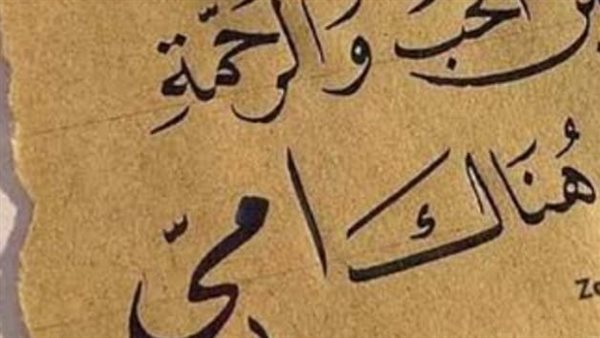 الحب وَالرَحمَّةِ
هُنَاك امّي